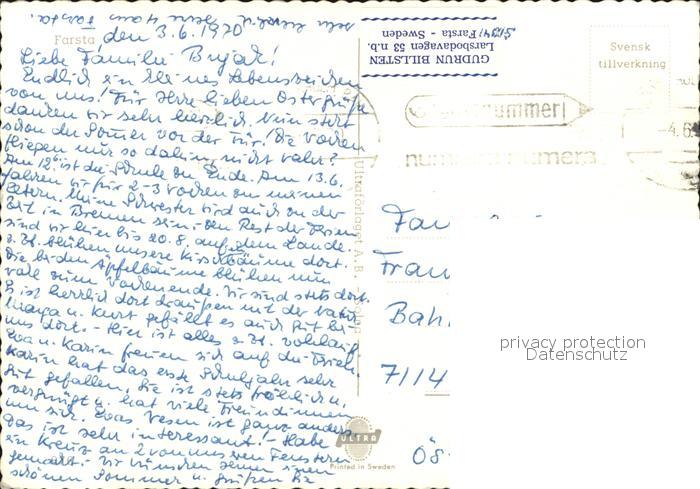 Farsta, den 3.6.1970
Liebe Familie Bujak!
Endlich ein kleines Lebenszeichen
von uns! Für Ihre lieben Ostergrüße
danken wir sehr herzlich. Nun steht
schon der Sommer vor der Tür! Die Wochen
fliegen nur so dahin, nicht wahr?
Am 12.6. ist die Schule zu Ende. Am 13.6.
fahren wir für 2-3 Wochen zu meinen
Eltern. Meine Schwester wird auch zu der
Zeit in Bremen sein. Den Rest der Ferien
sind wir hier bis 20.8. auf dem Lande.
z. Zt. blühen unsere Kirschbäume dort.
Die beiden Apfelbäume blühen nun
wohl zum Wochenende. Wir sind stets dort.
Es ist herrlich dort draußen mit der Natur
u. Kurt gefällt es auch gut bei
uns dort. - Hier ist alles z. Zt. wohlauf.
Ewa u. Karin freuen sich auf die Ferien.
Karin hat das erste Schuljahr sehr
gut gefallen, sie ist stets fröhlich u.
vergnügt u. hat viele Freundinnen
um sich. Ewas Wesen ist ganz anders
das ist sehr interessant! - Habe
ein Kreuz an 2 von unseren Fenstern
gemacht. Wir wünschen Ihnen einen
schönen Sommer u. grüßen Sie
sehr herzlich Ihre 4 aus Farsta.
GUDRUN BILLSTEN
Larsbodavägen 53 n.b.
Farsta - Sweden
Svensk
tillverkning
nummer!
numera
-4.6
Ultraförlaget A.B.
Fam
Frau
Bah
7114
ÖS
privacy protection
Datenschutz
ULTRA
Printed in Sweden